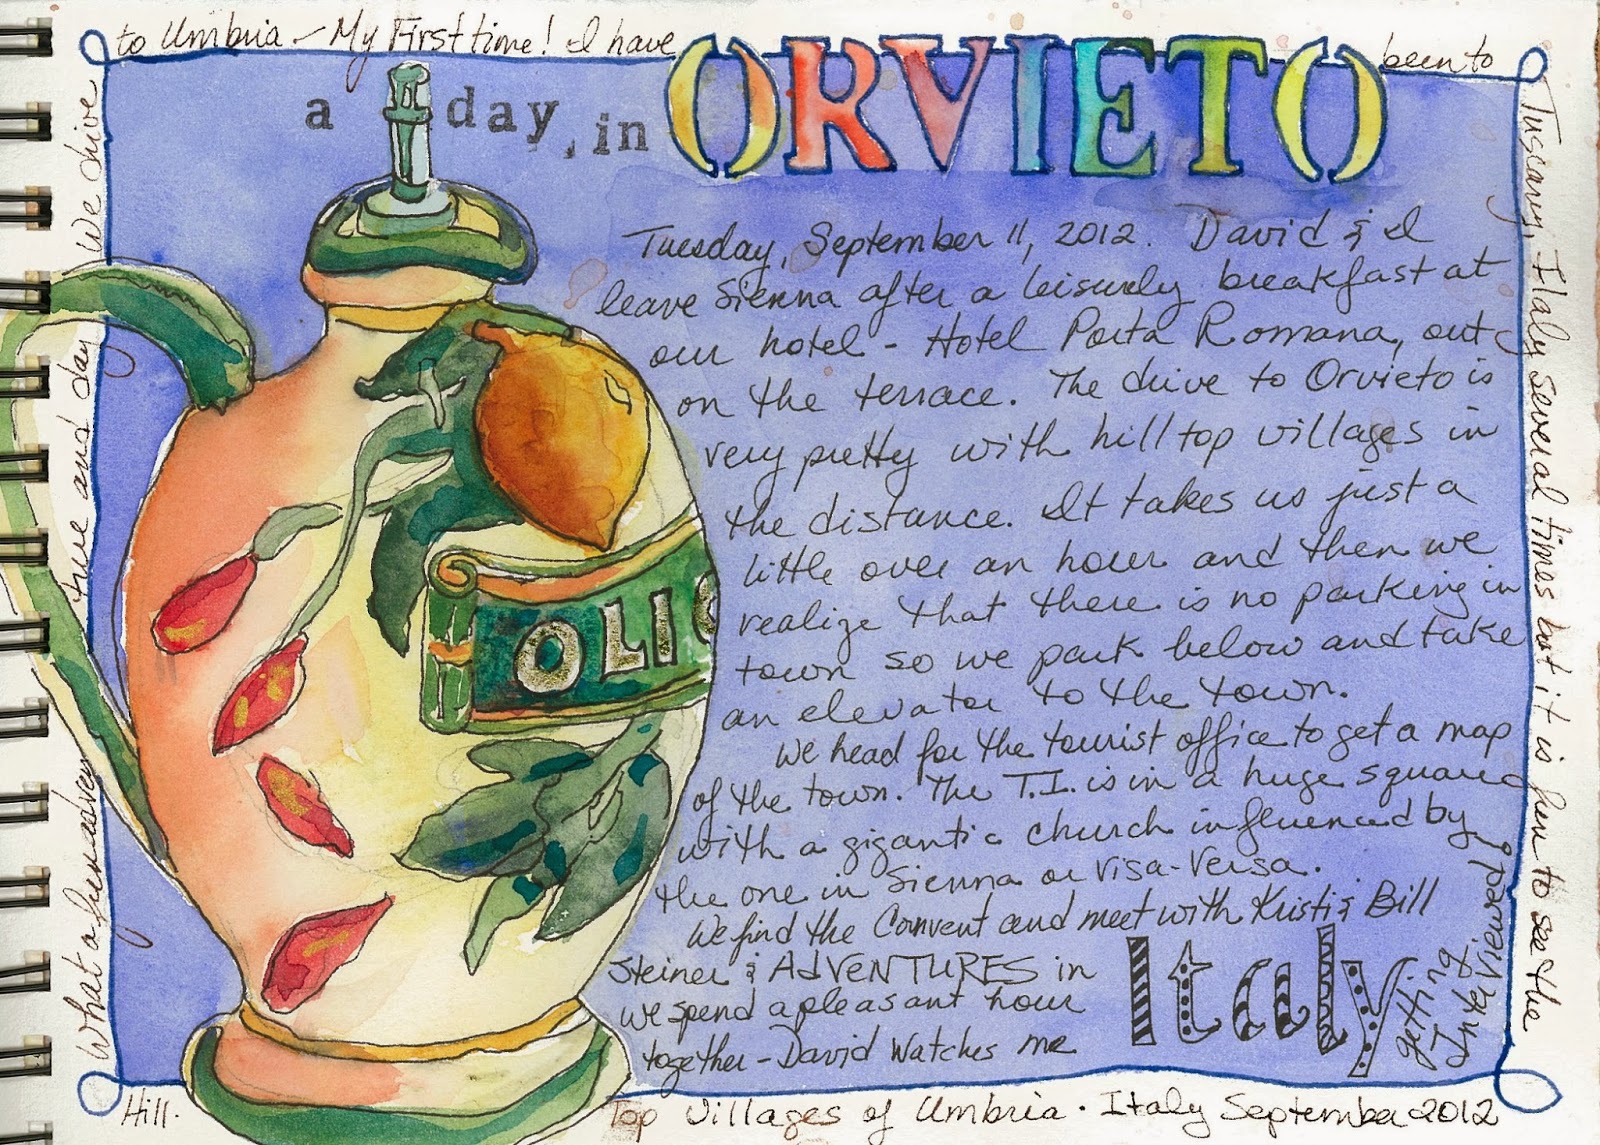 a day, in ORVIETO
Tuesday, September 11, 2012. David & I
leave Sienna after a leisurely breakfast at
our hotel - Hotel Porta Romana, out
on the terrace. The drive to Orvieto is
very pretty with hill top villages in
the distance. It takes us just a
little over an hour and then we
realize that there is no parking in
town so we park below and take
an elevator to the town.
We head for the tourist office to get a map
of the town. The T.I. is in a huge square
with a gigantic church influenced by
the one in Sienna or visa-versa.
We find the Convent and meet with Kristi & Bill
Steiner & AdVENTURES in Italy
we spend a pleasant hour
together - David watches me
getting
Interviewed!
OLIO
What a fun adventure and day We drive
to Umbria - My First time! I have been to
Tuscany, Italy several times but it is fun to see the
Hill Top Villages of Umbria. Italy September 2012